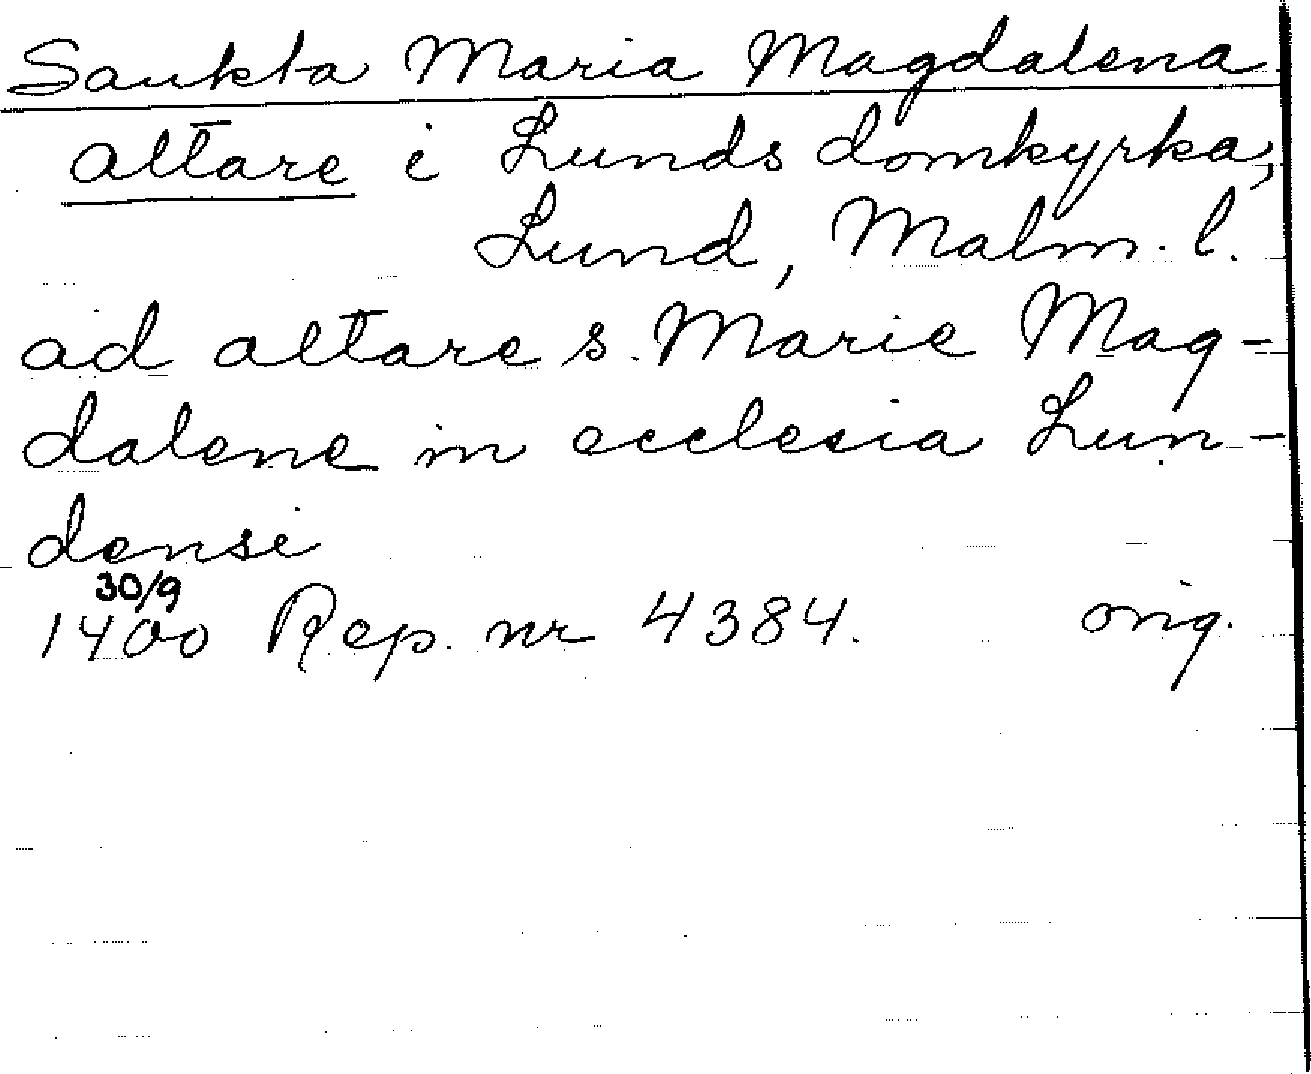 Sankta Maria Magdalena
altare i Lunds domkyrka,
Lund, Malm. l.
ad altare s. Marie Mag-
dalene in ecclesia Lun-
densi
30/9
1400 Rep. nr 4384. orig.